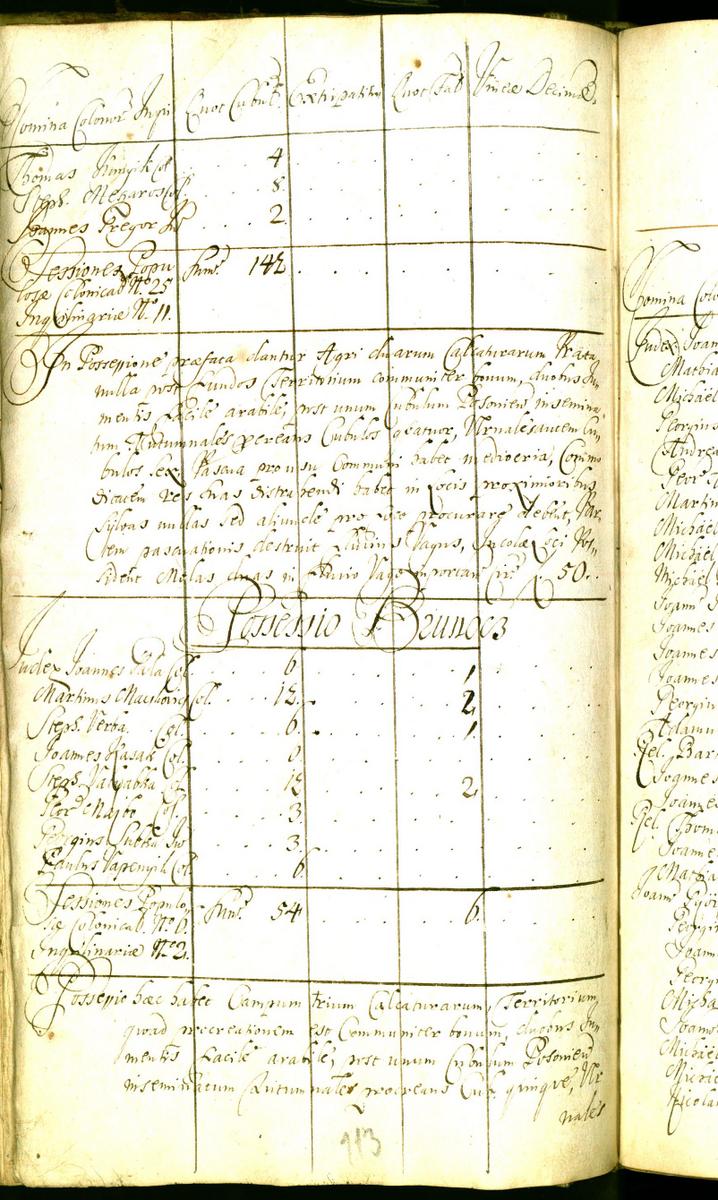 Nomina Colonor Inqui Quot Cubul. Extirpatitiæ Quot Falc Vineæ Decima
Thomas Col. 4
Steph. Meszaros Col. 8
Joannes Gregor Inq 2
Sessiones Popu Sum. 142
losæ Colonical. No. 25
Inquilinariæ No. 11.
In Possessione præfata dantur Agri duarum Calcaturarum Prata
nulla post fundos Territorium communiter bonum, duobus Ju
mentis facile arabile, post unum Cubulum Posoniens. insemina
tum Autumnales procreans Cubulos quatuor, Vernales autem Cu
bulos sex, Pascua pro usu Communi habet mediocria, Commo
ditatem res suas distrahendi habet in Locis proximioribus
Sylvas nullas sed aliunde pro igne procurare debent, Par
tem pascuationis destruit fluvius Vagus, Incolæ Loci Pos
sident Molas duas in Fluvio Vago importan 50.
Possessio Brunocz
Judex Joannes Col. 6 1
Martinus Col. 12 2
Steph. Verba Col. 6 1
Joannes Kasak Col. 6
Steph. Col. 12 2
Georg Majbo Col. 3
Georgius Inq 3
Paulus Vapenyik Col 6
Sessiones Populo Sum. 54 6
sæ Colonical. No. 6
Inquilinariæ No. 2.
Possessio hæc habet Campum trium Calcaturarum, Territorium
quoad procreationem est Communiter bonum, duobus Ju
mentis facile arabile, post unum Cubulum Posoniens
inseminatum Autumnales procreans Cub. quinque, Ver
nales
113
Nomina Colo
Judex Joan
Mathia
Michael
Georgius
Andrea
Georg
Martin
Michael
Michael
Michael
Joann
Joannes
Joannes
Joannes
Georgiu
Adamu
Rel. Bar
Joannes
Joannes
Rel. Thom
Joanne
Mathia
Joann
Georgiu
Joann
Georg
Micha
Joanne
Michael
Michae
Nicola